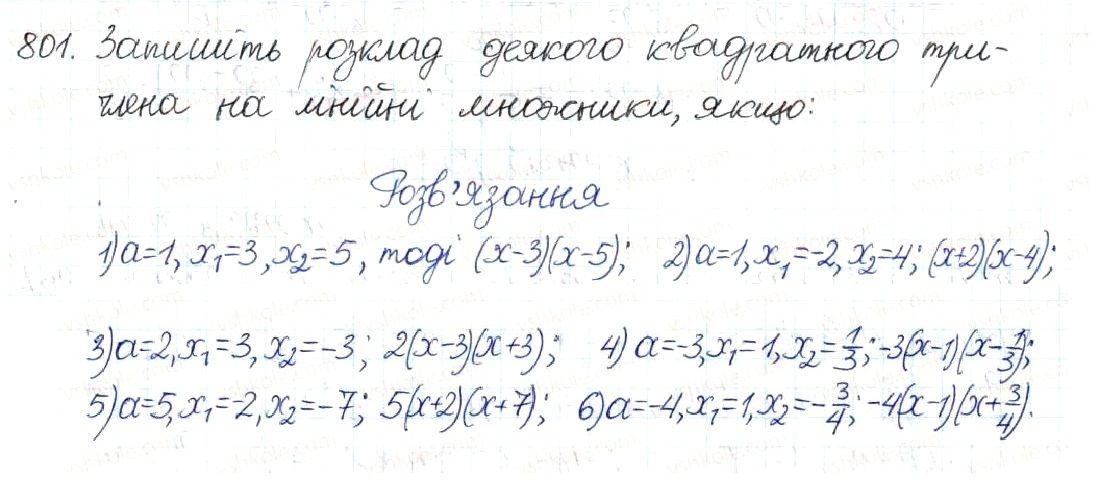 801. Запишіть розклад деякого квадратного три-
члена на лінійні множники, якщо:
Розв'язання
1) a=1, x₁=3, x₂=5, тоді (x-3)(x-5); 2) a=1, x₁=-2, x₂=4; (x+2)(x-4);
3) a=2, x₁=3, x₂=-3; 2(x-3)(x+3); 4) a=-3, x₁=1, x₂=1/3; -3(x-1)(x-1/3);
5) a=5, x₁=-2, x₂=-7; 5(x+2)(x+7); 6) a=-4, x₁=1, x₂=-3/4; -4(x-1)(x+3/4).